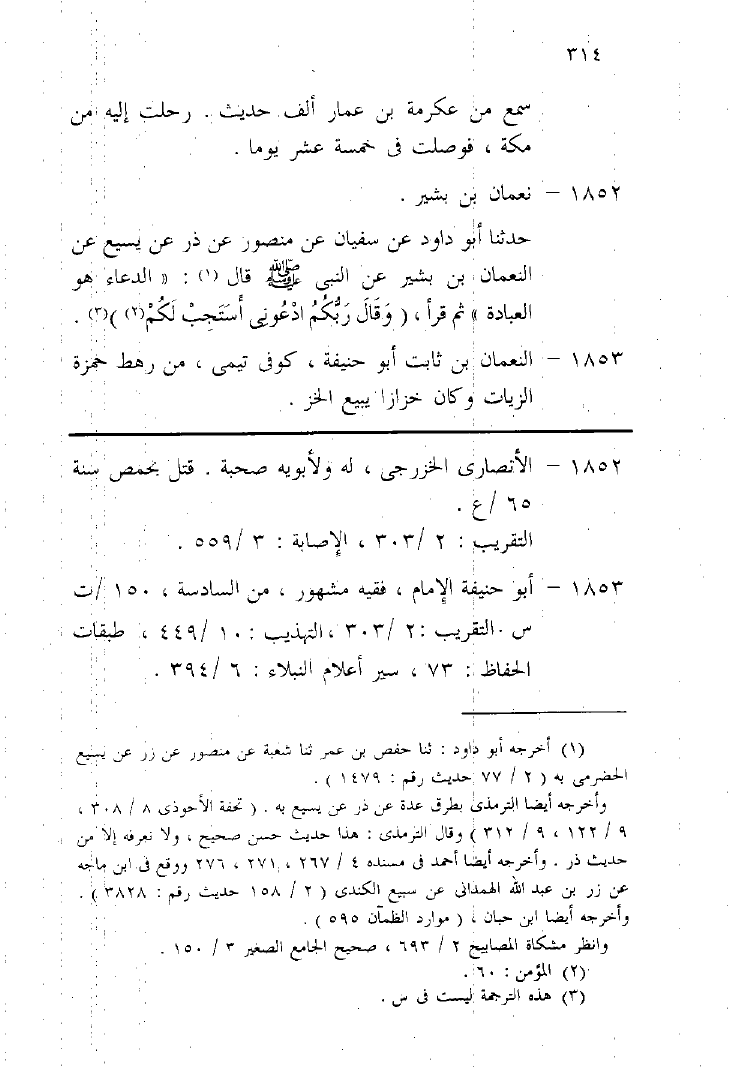 ٣١٤
سمع من عكرمة بن عمار ألف حديث . رحلت إليه من
مكة ، فوصلت فى خمسة عشر يوما .
١٨٥٢ – نعمان بن بشير .
حدثنا أبو داود عن سفيان عن منصور عن ذر عن يسيع عن
النعمان بن بشير عن النبى ﷺ قال (١) : « الدعاء هو
العبادة » ثم قرأ ، ( وَقَالَ رَبُّكُمُ ادْعُونِى أَسْتَجِبْ لَكُمْ(٢) )(٣) .
١٨٥٣ – النعمان بن ثابت أبو حنيفة ، كوفى تيمى ، من رهط حمزة
الزيات وكان خزازا يبيع الخز .
١٨٥٢ – الأنصارى الخزرجى ، له ولأبويه صحبة . قتل بحمص سنة
٦٥ /ع .
التقريب : ٢ /٣٠٣ ، الإصابة : ٣ /٥٥٩ .
١٨٥٣ – أبو حنيفة الإمام ، فقيه مشهور ، من السادسة ، ١٥٠ /ت
س . التقريب : ٢ /٣٠٣ ، التهذيب : ١٠ /٤٤٩ ، طبقات
الحفاظ : ٧٣ ، سير أعلام النبلاء : ٦ /٣٩٤ .
(١) أخرجه أبو داود : ثنا حفص بن عمر ثنا شعبة عن منصور عن زر عن يسيع
الحضرمى به ( ٢ / ٧٧ حديث رقم : ١٤٧٩ ) .
وأخرجه أيضا الترمذى بطرق عدة عن ذر عن يسيع به . ( تحفة الأحوذى ٨ / ٣٠٨ ،
٩ / ١٢٢ ، ٩ / ٣١٢ ) وقال الترمذى : هذا حديث حسن صحيح ، ولا نعرفه إلا من
حديث ذر . وأخرجه أيضا أحمد فى مسنده ٤ / ٢٦٧ ، ٢٧١ ، ٢٧٦ ووقع فى ابن ماجه
عن زر بن عبد الله الهمدانى عن سبيع الكندى ( ٢ / ١٥٨ حديث رقم : ٣٨٢٨ ) .
وأخرجه أيضا ابن حبان ، ( موارد الظمآن ٥٩٥ ) .
وانظر مشكاة المصابيح ٢ / ٦٩٣ ، صحيح الجامع الصغير ٣ / ١٥٠ .
(٢) المؤمن : ٦٠ .
(٣) هذه الترجمة ليست فى س .